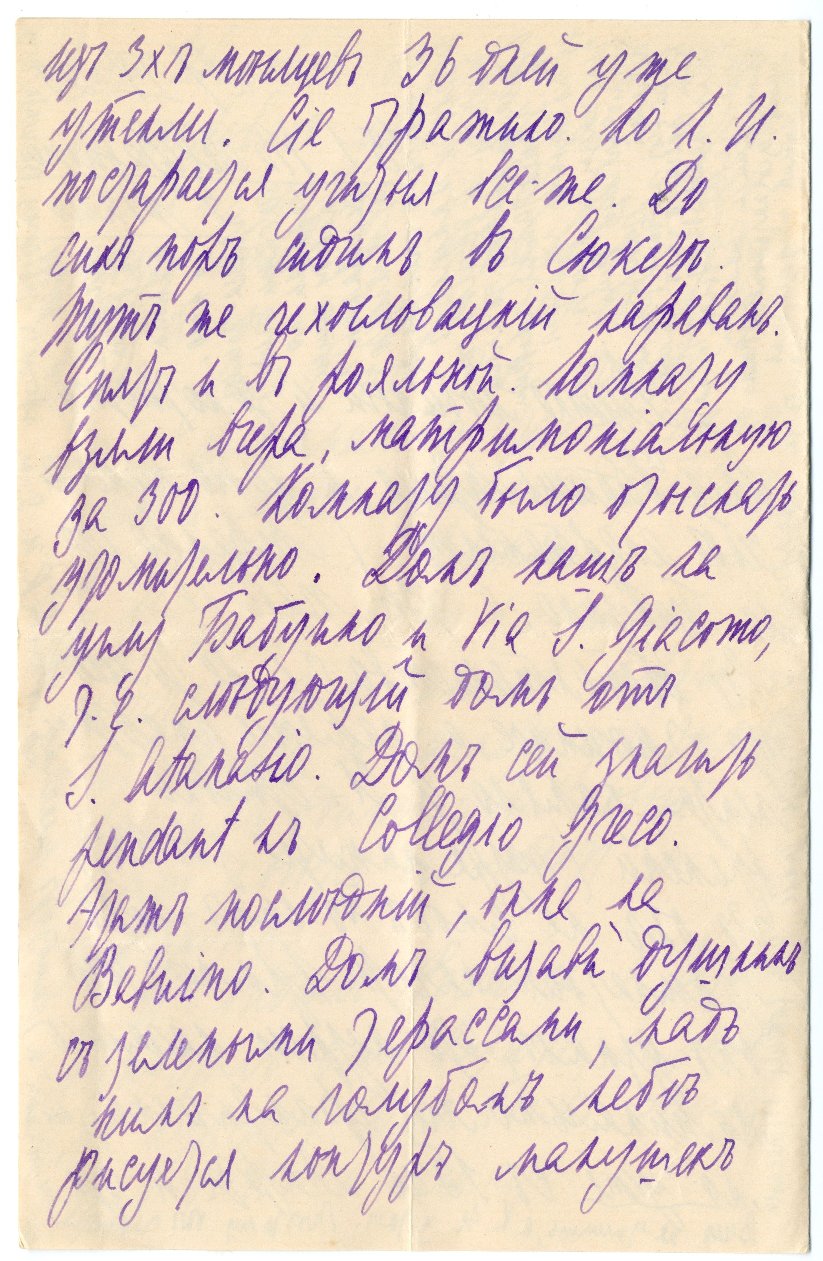 изъ 3хъ мѣсяцевъ 36 дней уже
утекли. Сіе трагично. Но Л. И.
постарается учиться все-же. До
сихъ поръ сидимъ въ Сюкерѣ.
Тутъ же чехословацкій караванъ.
Спятъ и въ рояльной. Комнату
взяли вчера, матримоніальную
за 300. Комнату было отыскать
утомительно. Домъ нашъ на
углу Бабуино и Via S. Giacomo,
т. е. слѣдующій домъ отъ
S. Atanasio. Домъ сей значитъ
pendant къ Collegio Greco.
Этажъ послѣдній, окне на
Babuino. Домъ визави
съ зелеными терассами, надъ
ними на голубомъ небѣ
рисуется контуръ макушекъ